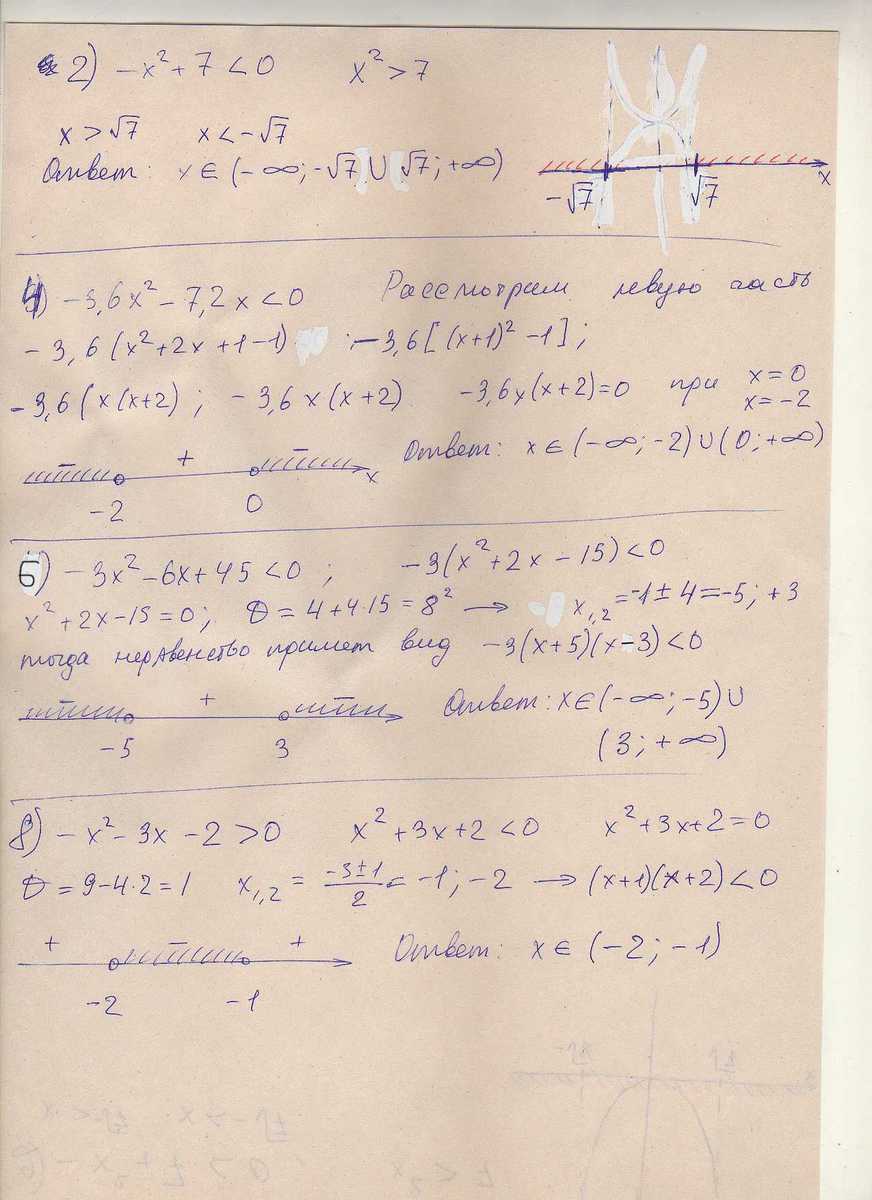 2) −x² + 7 < 0    x² > 7
x > √7    x < −√7
Ответ: x ∈ (−∞; −√7) ∪ (√7; +∞)
−√7    √7    x
4) −3,6x² − 7,2x < 0    Рассмотрим левую часть
−3,6(x² + 2x + 1 − 1) ; −3,6[(x+1)² − 1];
−3,6(x(x+2); −3,6x(x+2)    −3,6x(x+2)=0 при x=0
x=−2
Ответ: x ∈ (−∞; −2) ∪ (0; +∞)
−    +    −    x
−2    0
6) −3x² − 6x + 45 < 0;    −3(x² + 2x − 15) < 0
x² + 2x − 15 = 0; D = 4 + 4·15 = 8² → x₁,₂ = −1 ± 4 = −5; +3
тогда неравенство примет вид −3(x+5)(x−3) < 0
−    +    −    Ответ: x ∈ (−∞; −5) ∪
−5    3    (3; +∞)
8) −x² − 3x − 2 > 0    x² + 3x + 2 < 0    x² + 3x + 2 = 0
D = 9 − 4·2 = 1    x₁,₂ = (−3±1)/2 = −1; −2 → (x+1)(x+2) < 0
+    −    +    Ответ: x ∈ (−2; −1)
−2    −1